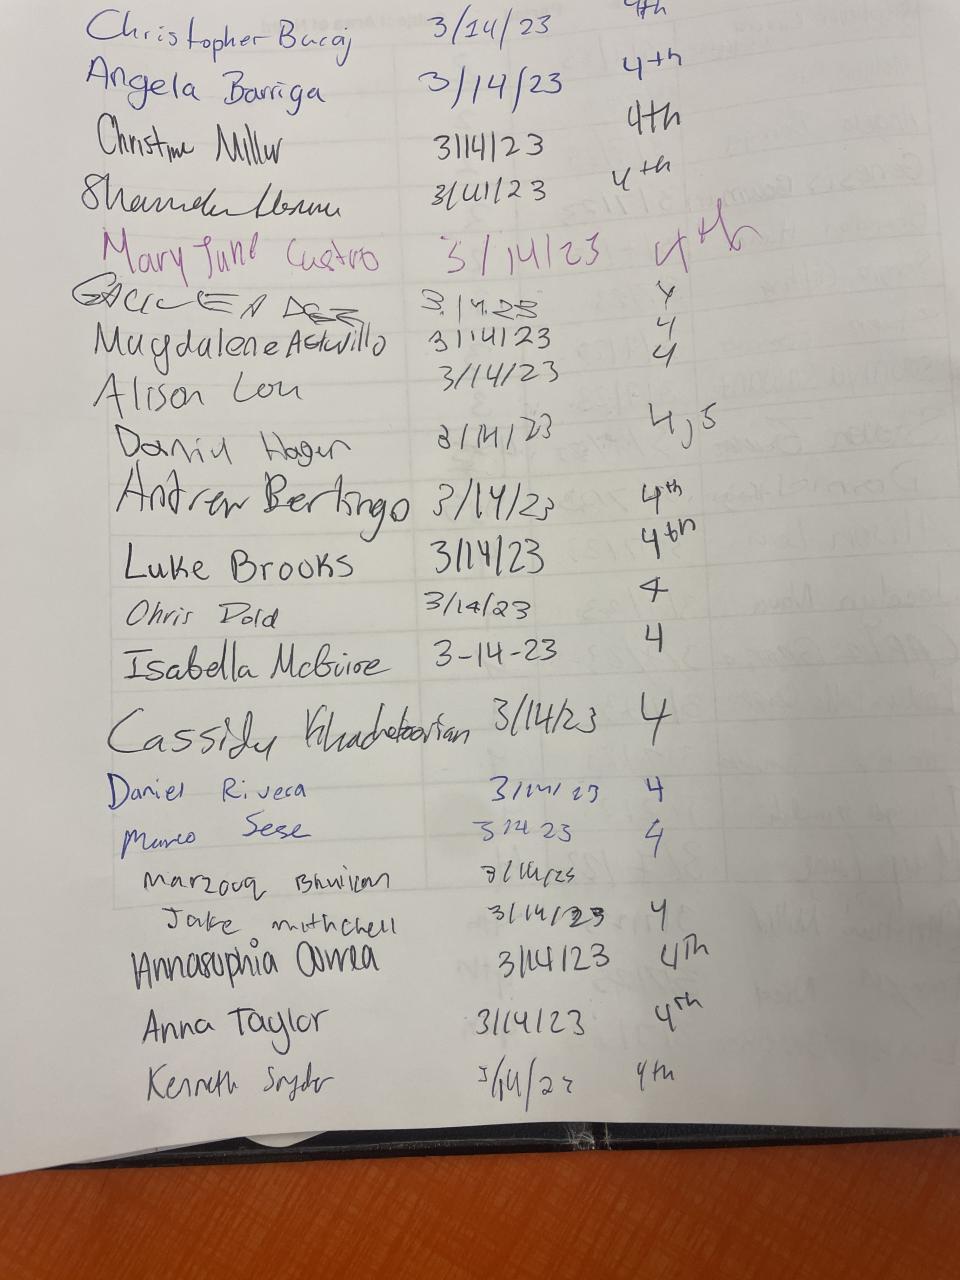 Christopher Bucaj 3/14/23 4th
Angela Barriga 3/14/23 4th
Christine Miller 3/14/23 4th
3/14/23 4th
Mary June Castro 3/14/23 4th
3.14.23 4
Magdalene Astudillo 3/14/23 4
Alison Lou 3/14/23 4
Daniel Hagen 3/14/23 4,5
Andrew Bertingo 3/14/23 4th
Luke Brooks 3/14/23 4th
Chris Dold 3/14/23 4
Isabella McGuire 3-14-23 4
Cassidy Khachetoorian 3/14/23 4
Daniel Rivera 3/14/23 4
Marco Sese 3 14 23 4
Marzouq Bhuiyan 3/14/23
Jake mithchell 3/14/23 4
Annasophia Correa 3/14/23 4th
Anna Taylor 3/14/23 4th
Kenneth Snyder 3/14/23 4th